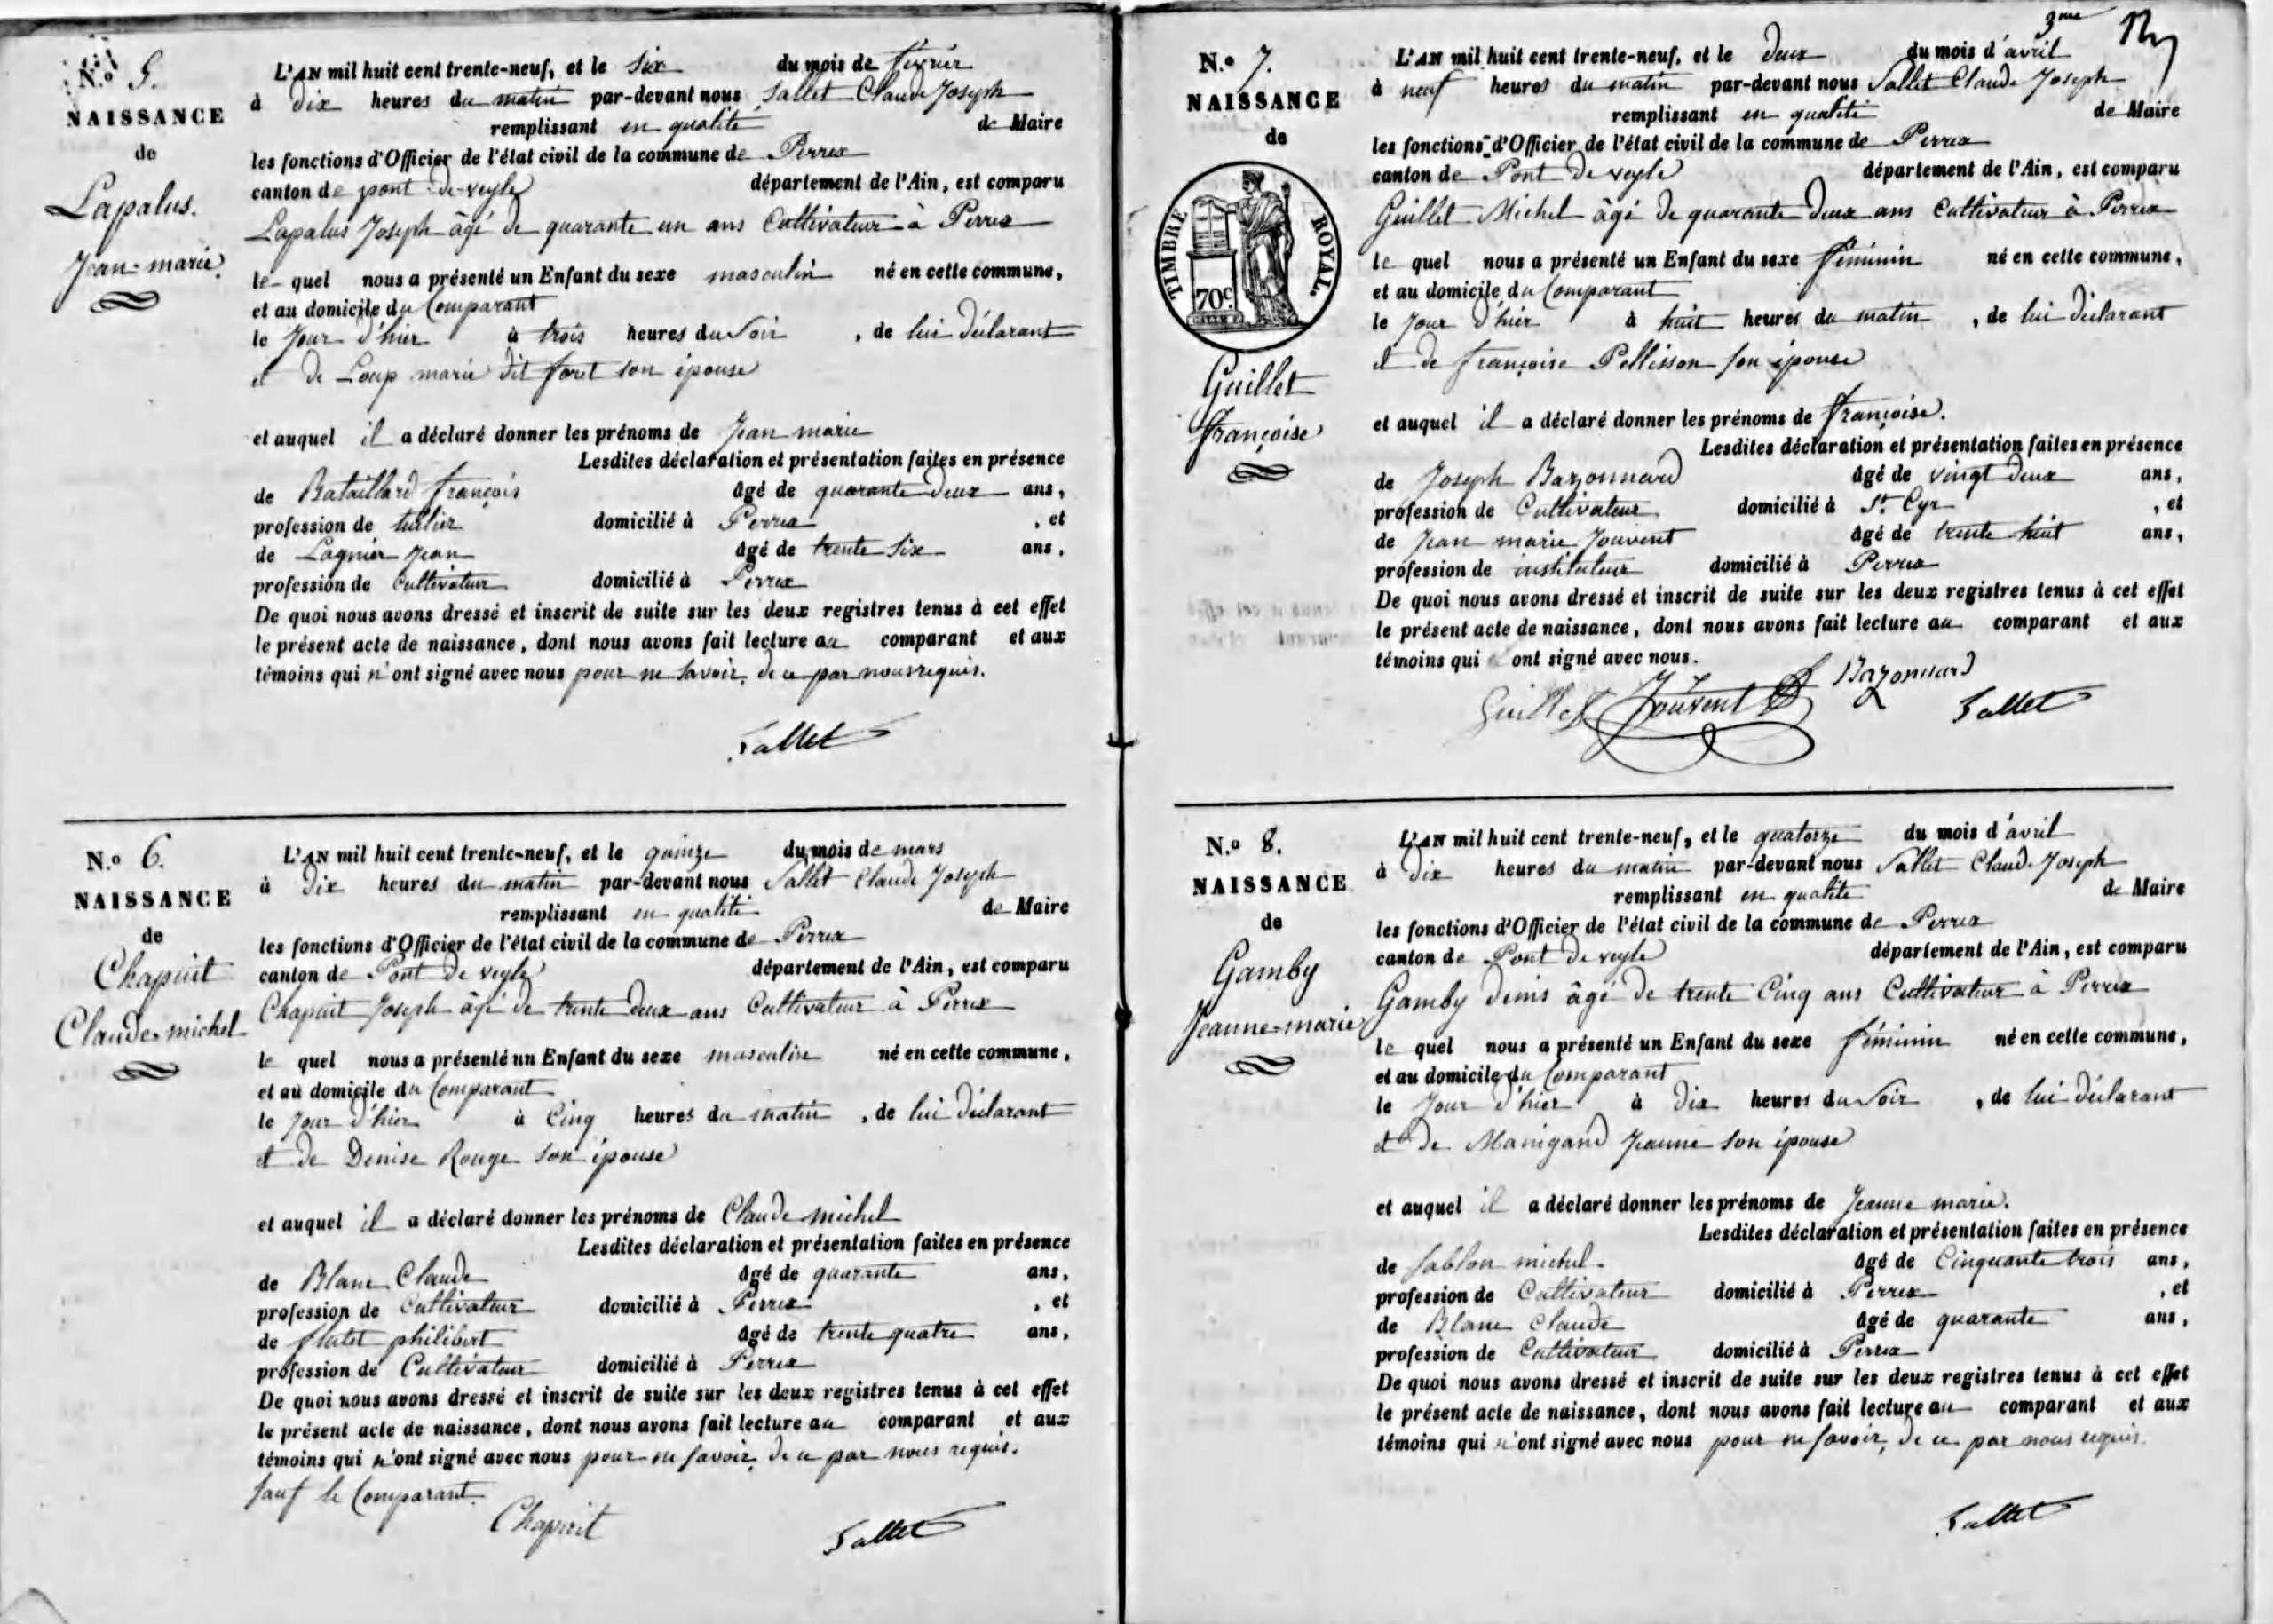 N.o 5.
NAISSANCE
de
Lapalus.
Jean-marie
L'AN mil huit cent trente-neuf, et le Six du mois de février
à dix heures du matin par-devant nous Sallet Claude Joseph
remplissant en qualité de Maire
les fonctions d'Officier de l'état civil de la commune de Perrex
canton de pont-de-veyle département de l'Ain, est comparu
Lapalus Joseph âgé de quarante un ans Cultivateur à Perrex
le quel nous a présenté un Enfant du sexe masculin né en cette commune,
et au domicile du Comparant
le Jour d'hier à trois heures du Soir, de lui déclarant
et de Loup marie dit foret son épouse
et auquel il a déclaré donner les prénoms de Jean marie
Lesdites déclaration et présentation faites en présence
de Bataillard françois âgé de quarante deux ans,
profession de tuilier domicilié à Perrex, et
de Lagnier Jean âgé de trente Six ans,
profession de Cultivateur domicilié à Perrex
De quoi nous avons dressé et inscrit de suite sur les deux registres tenus à cet effet
le présent acte de naissance, dont nous avons fait lecture au comparant et aux
témoins qui n'ont signé avec nous pour ne Savoir, de ce par nous requis.
Sallet
N.o 6.
NAISSANCE
de
Chapuit
Claude-michel
L'AN mil huit cent trente-neuf, et le quinze du mois de mars
à dix heures du matin par-devant nous Sallet Claude Joseph
remplissant en qualité de Maire
les fonctions d'Officier de l'état civil de la commune de Perrex
canton de Pont de veyle département de l'Ain, est comparu
Chapuit Joseph âgé de trente deux ans Cultivateur à Perrex
le quel nous a présenté un Enfant du sexe masculin né en cette commune,
et au domicile du Comparant
le Jour d'hier à Cinq heures du matin, de lui déclarant
et de Denise Rouge son épouse
et auquel il a déclaré donner les prénoms de Claude michel
Lesdites déclaration et présentation faites en présence
de Blanc Claude âgé de quarante ans,
profession de Cultivateur domicilié à Perrex, et
de flutet philibert âgé de trente quatre ans,
profession de Cultivateur domicilié à Perrex
De quoi nous avons dressé et inscrit de suite sur les deux registres tenus à cet effet
le présent acte de naissance, dont nous avons fait lecture au comparant et aux
témoins qui n'ont signé avec nous pour ne savoir, de ce par nous requis.
sauf le Comparant.
Chapuit Sallet
3me
N.o 7.
NAISSANCE
de
TIMBRE ROYAL.
70c
Guillet
françoise
L'AN mil huit cent trente-neuf, et le deux du mois d'avril
à neuf heures du matin par-devant nous Sallet Claude Joseph
remplissant en qualité de Maire
les fonctions d'Officier de l'état civil de la commune de Perrex
canton de Pont de veyle département de l'Ain, est comparu
Guillet Michel âgé de quarante deux ans Cultivateur à Perrex
le quel nous a présenté un Enfant du sexe féminin né en cette commune,
et au domicile du Comparant
le Jour d'hier à huit heures du matin, de lui déclarant
et de françoise Pellisson son épouse
et auquel il a déclaré donner les prénoms de françoise.
Lesdites déclaration et présentation faites en présence
de Joseph Bazonnard âgé de vingt deux ans,
profession de Cultivateur domicilié à St. Cyr, et
de Jean marie Jouvent âgé de trente huit ans,
profession de instituteur domicilié à Perrex
De quoi nous avons dressé et inscrit de suite sur les deux registres tenus à cet effet
le présent acte de naissance, dont nous avons fait lecture au comparant et aux
témoins qui ont signé avec nous.
Guillet Jouvent Bazonnard Sallet
N.o 8.
NAISSANCE
de
Gamby
Jeanne-marie
L'AN mil huit cent trente-neuf, et le quatorze du mois d'avril
à dix heures du matin par-devant nous Sallet Claude Joseph
remplissant en qualité de Maire
les fonctions d'Officier de l'état civil de la commune de Perrex
canton de Pont de veyle département de l'Ain, est comparu
Gamby denis âgé de trente Cinq ans Cultivateur à Perrex
le quel nous a présenté un Enfant du sexe féminin né en cette commune,
et au domicile du Comparant
le Jour d'hier à dix heures du Soir, de lui déclarant
et de Manigand Jeanne son épouse
et auquel il a déclaré donner les prénoms de Jeanne marie.
Lesdites déclaration et présentation faites en présence
de Sablon michel. âgé de Cinquante trois ans,
profession de Cultivateur domicilié à Perrex, et
de Blanc Claude âgé de quarante ans,
profession de Cultivateur domicilié à Perrex
De quoi nous avons dressé et inscrit de suite sur les deux registres tenus à cet effet
le présent acte de naissance, dont nous avons fait lecture au comparant et aux
témoins qui n'ont signé avec nous pour ne savoir, de ce par nous requis.
Sallet